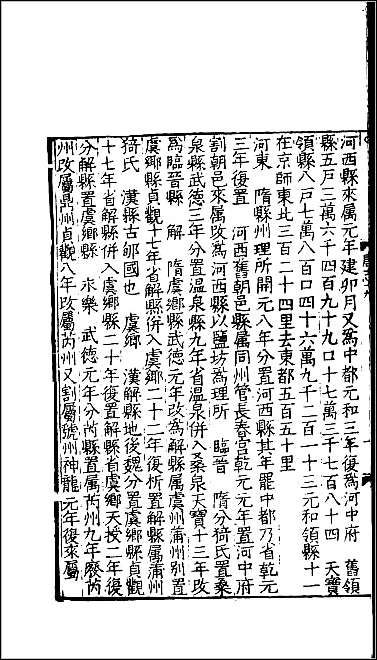 河西縣來屬元年建卯月又爲中都元和三年復爲河中府　舊領
縣五戶三萬六千四百九十九口十七萬三千七百八十四　天寶
領縣八戶七萬八百口四十六萬九千二百一十三元和領縣十一
在京師東北三百二十四里去東都五百五十里
河東　隋縣州理所開元八年分置河西縣其年罷中都乃省乾元
三年復置　河西舊朝邑縣屬同州管長春宮乾元元年置河中府
割朝邑來屬改爲河西縣以鹽坊爲理所　臨晉　隋分猗氏置桑
泉縣武德三年分置溫泉縣九年省溫泉併入桑泉天寶十三年改
爲臨晉縣　解　隋虞鄉縣武德元年改爲解縣屬虞州蒲州別置
虞鄉縣貞觀十七年省解縣併入虞鄉二十二年復析置解縣屬蒲州
猗氏　漢縣古郇國也　虞鄉　漢解縣地後魏分置虞鄉縣貞觀
十七年省解縣併入虞鄉縣二十年復置解縣省虞鄉天授二年復
分解縣置虞鄉縣　永樂　武德元年分芮縣置屬芮州九年廢芮
州改屬鼎州貞觀八年改屬芮州又割屬虢州神龍元年復來屬